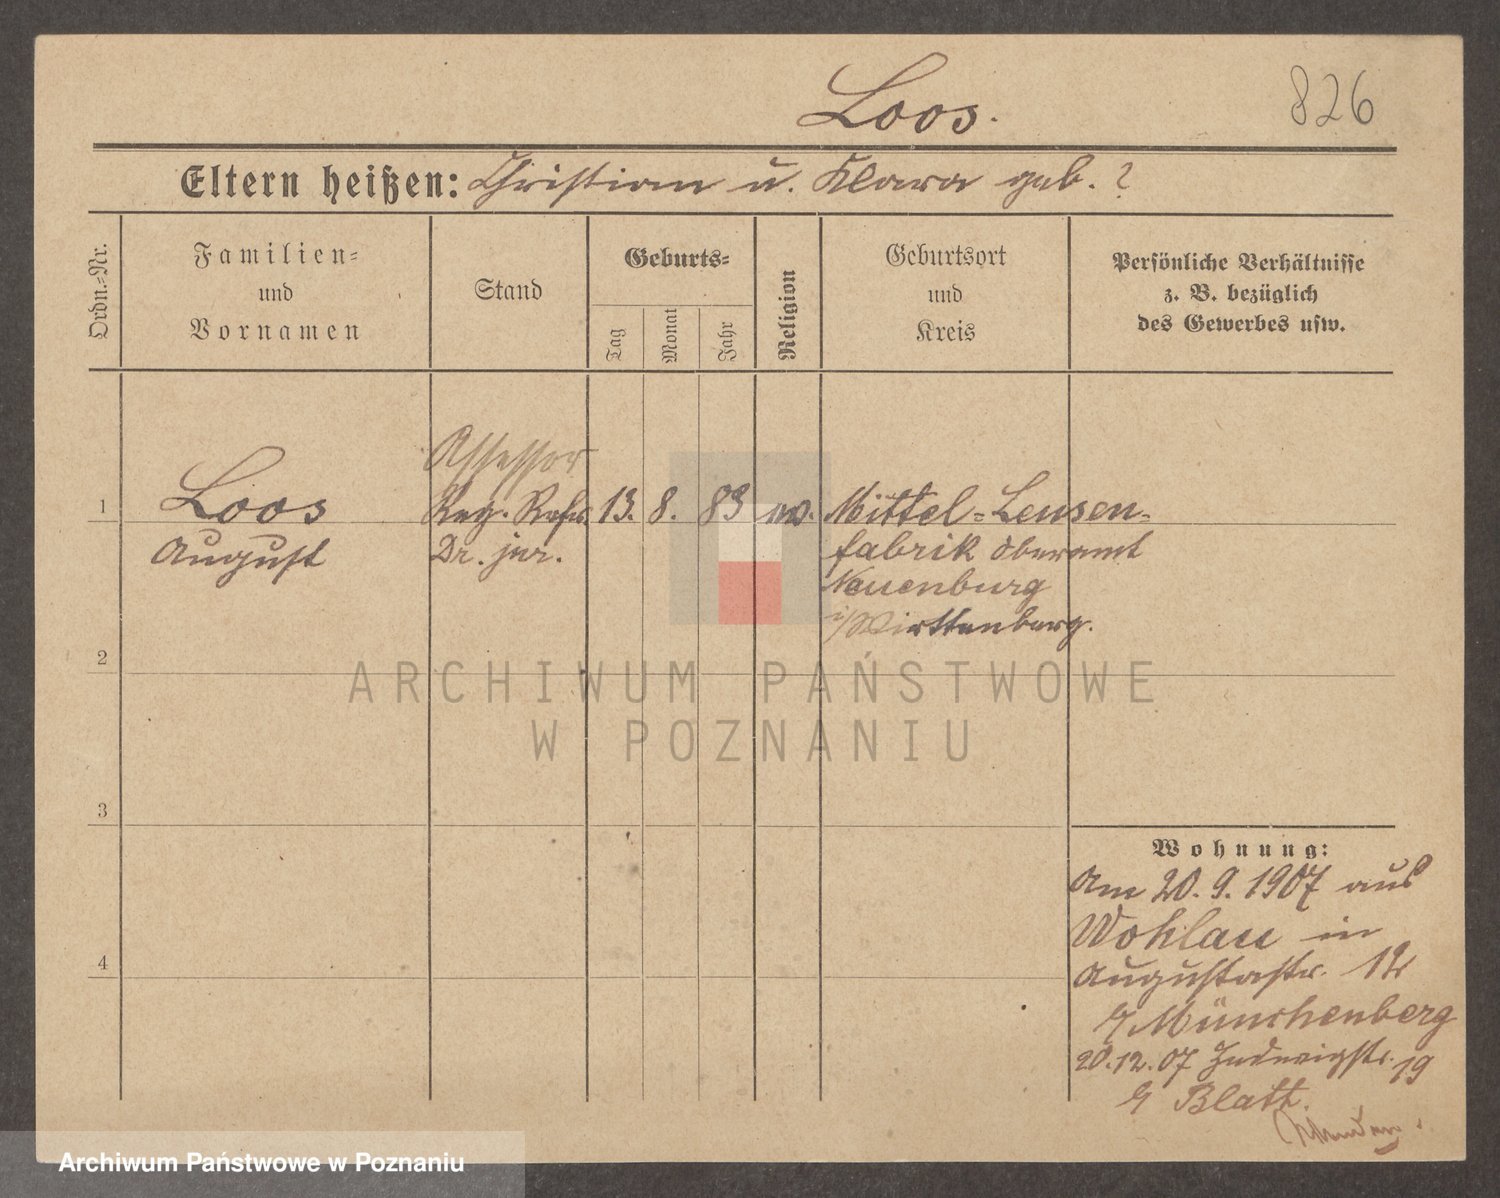 Loos.
826
Eltern heißen: Christian u. Klara geb. ?
Ordn.-Nr.
Familien-
und
Vornamen
Stand
Geburts-
Tag
Monat
Jahr
Religion
Geburtsort
und
Kreis
Persönliche Verhältnisse
z. B. bezüglich
des Gewerbes usw.
Assessor
1 Loos Reg. Refer. 13. 8. 83 Mittel-Sensen-
August Dr. jur. fabrik Oberamt
Neuenburg
i/Württemberg.
2
ARCHIWUM PAŃSTWOWE
W POZNANIU
3
Wohnung:
Am 20. 9. 1907 aus
Wohlau in
Augustastr. 12
b/ Münchenberg
20.12.07 Hedwigstr. 19
b/ Blatt.
4
Archiwum Państwowe w Poznaniu